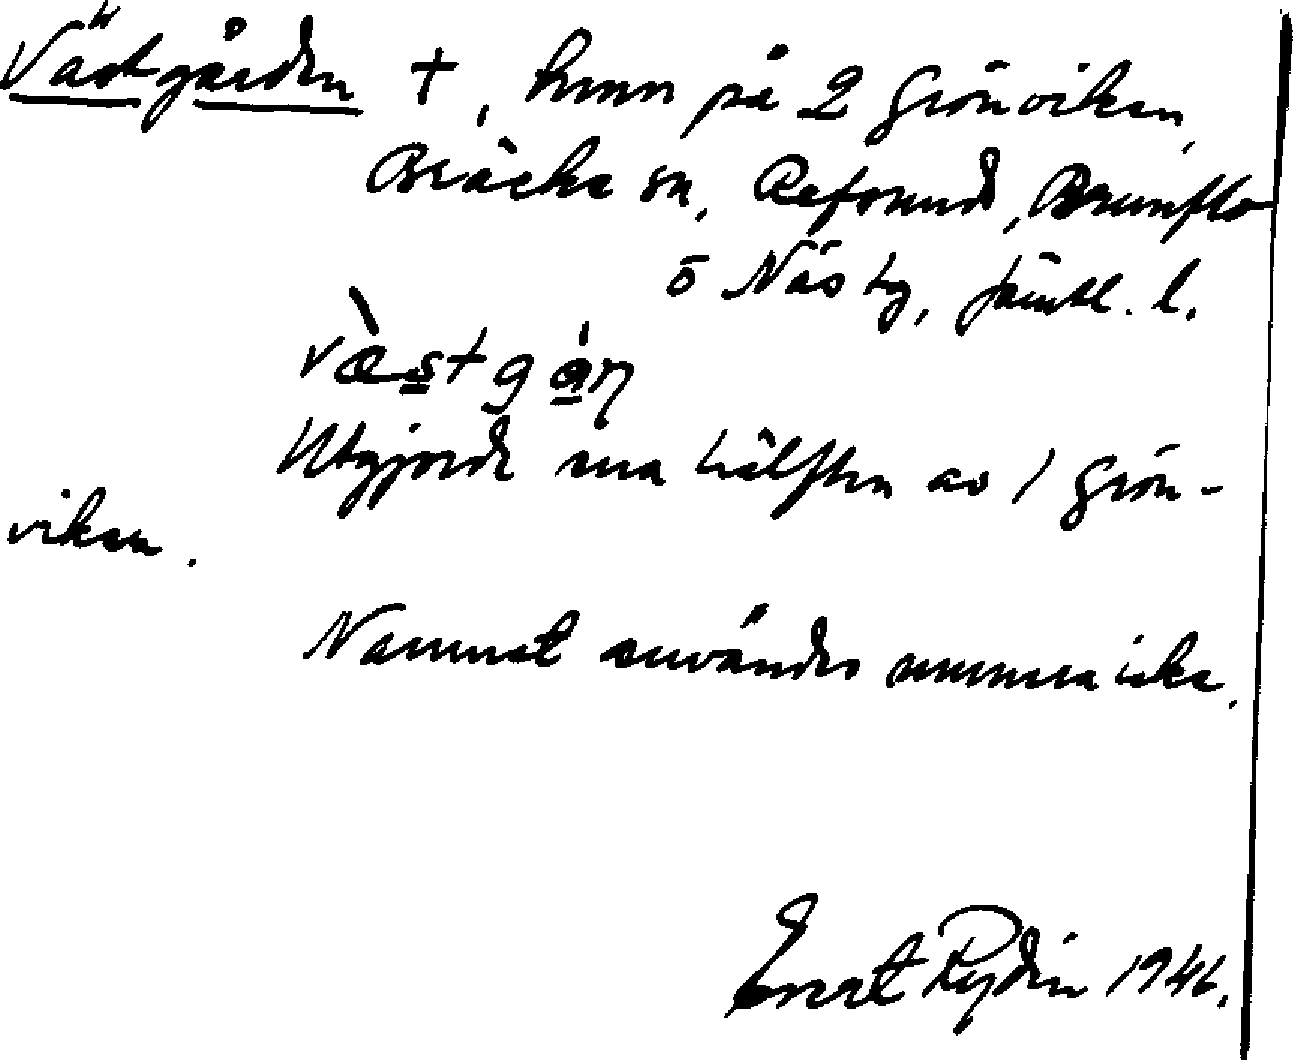 Västgården †, hmn på 2 Grönviken,
Bräcke sn, Refsund, Brunflo
o Näs tg, Jämtl. l.
væstgáɳ
Utgjorde ena hälften av 1 Grön-
viken.
Namnet användes numera icke.
Ernst Rydin 1946.